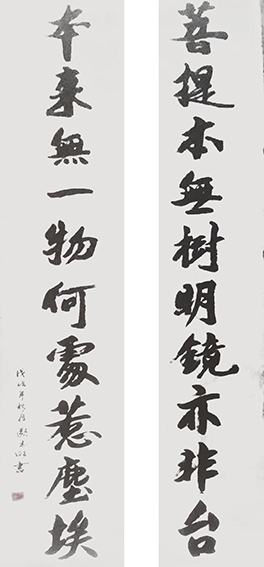 菩提本無樹明鏡亦非台
本来無一物何處惹塵埃
戊戌年秋月
書